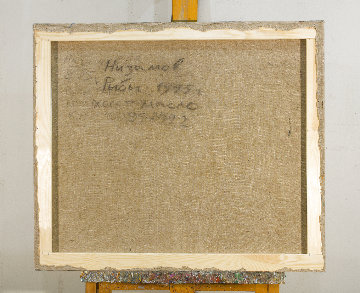 Низамов
Рыбы 1995г
холст масло